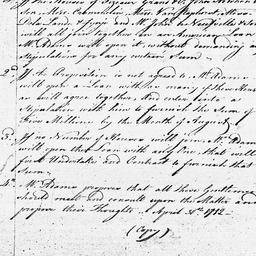 If the Houses of
Son, Mess. Chs
De la Lande & Fynje and Mr. John de Neufville & Son
will all join together in an American Loan
Mr. Adams will open it, without demanding a
Stipulation for any certain Sum.
2. If this Proposition is not agreed to, Mr. Adams
will open a Loan with as many of these Houses
as will agree together, and enter into a
Stipulation with him to furnish the Sum of
Five Millions by the Month of August
3. If no Number of Houses will join, Mr. Adams
will open the Loan with any One, that will
first Undertake and Contract to furnish that
Sum.
4. Mr. Adams proposes that all these Gentlemen
should meet and consult upon the Matter and
propose their Thoughts. April 30th. 1782
(Copy)